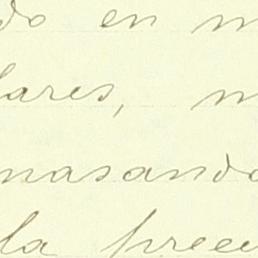 do en m
lares, m
masando
la preen